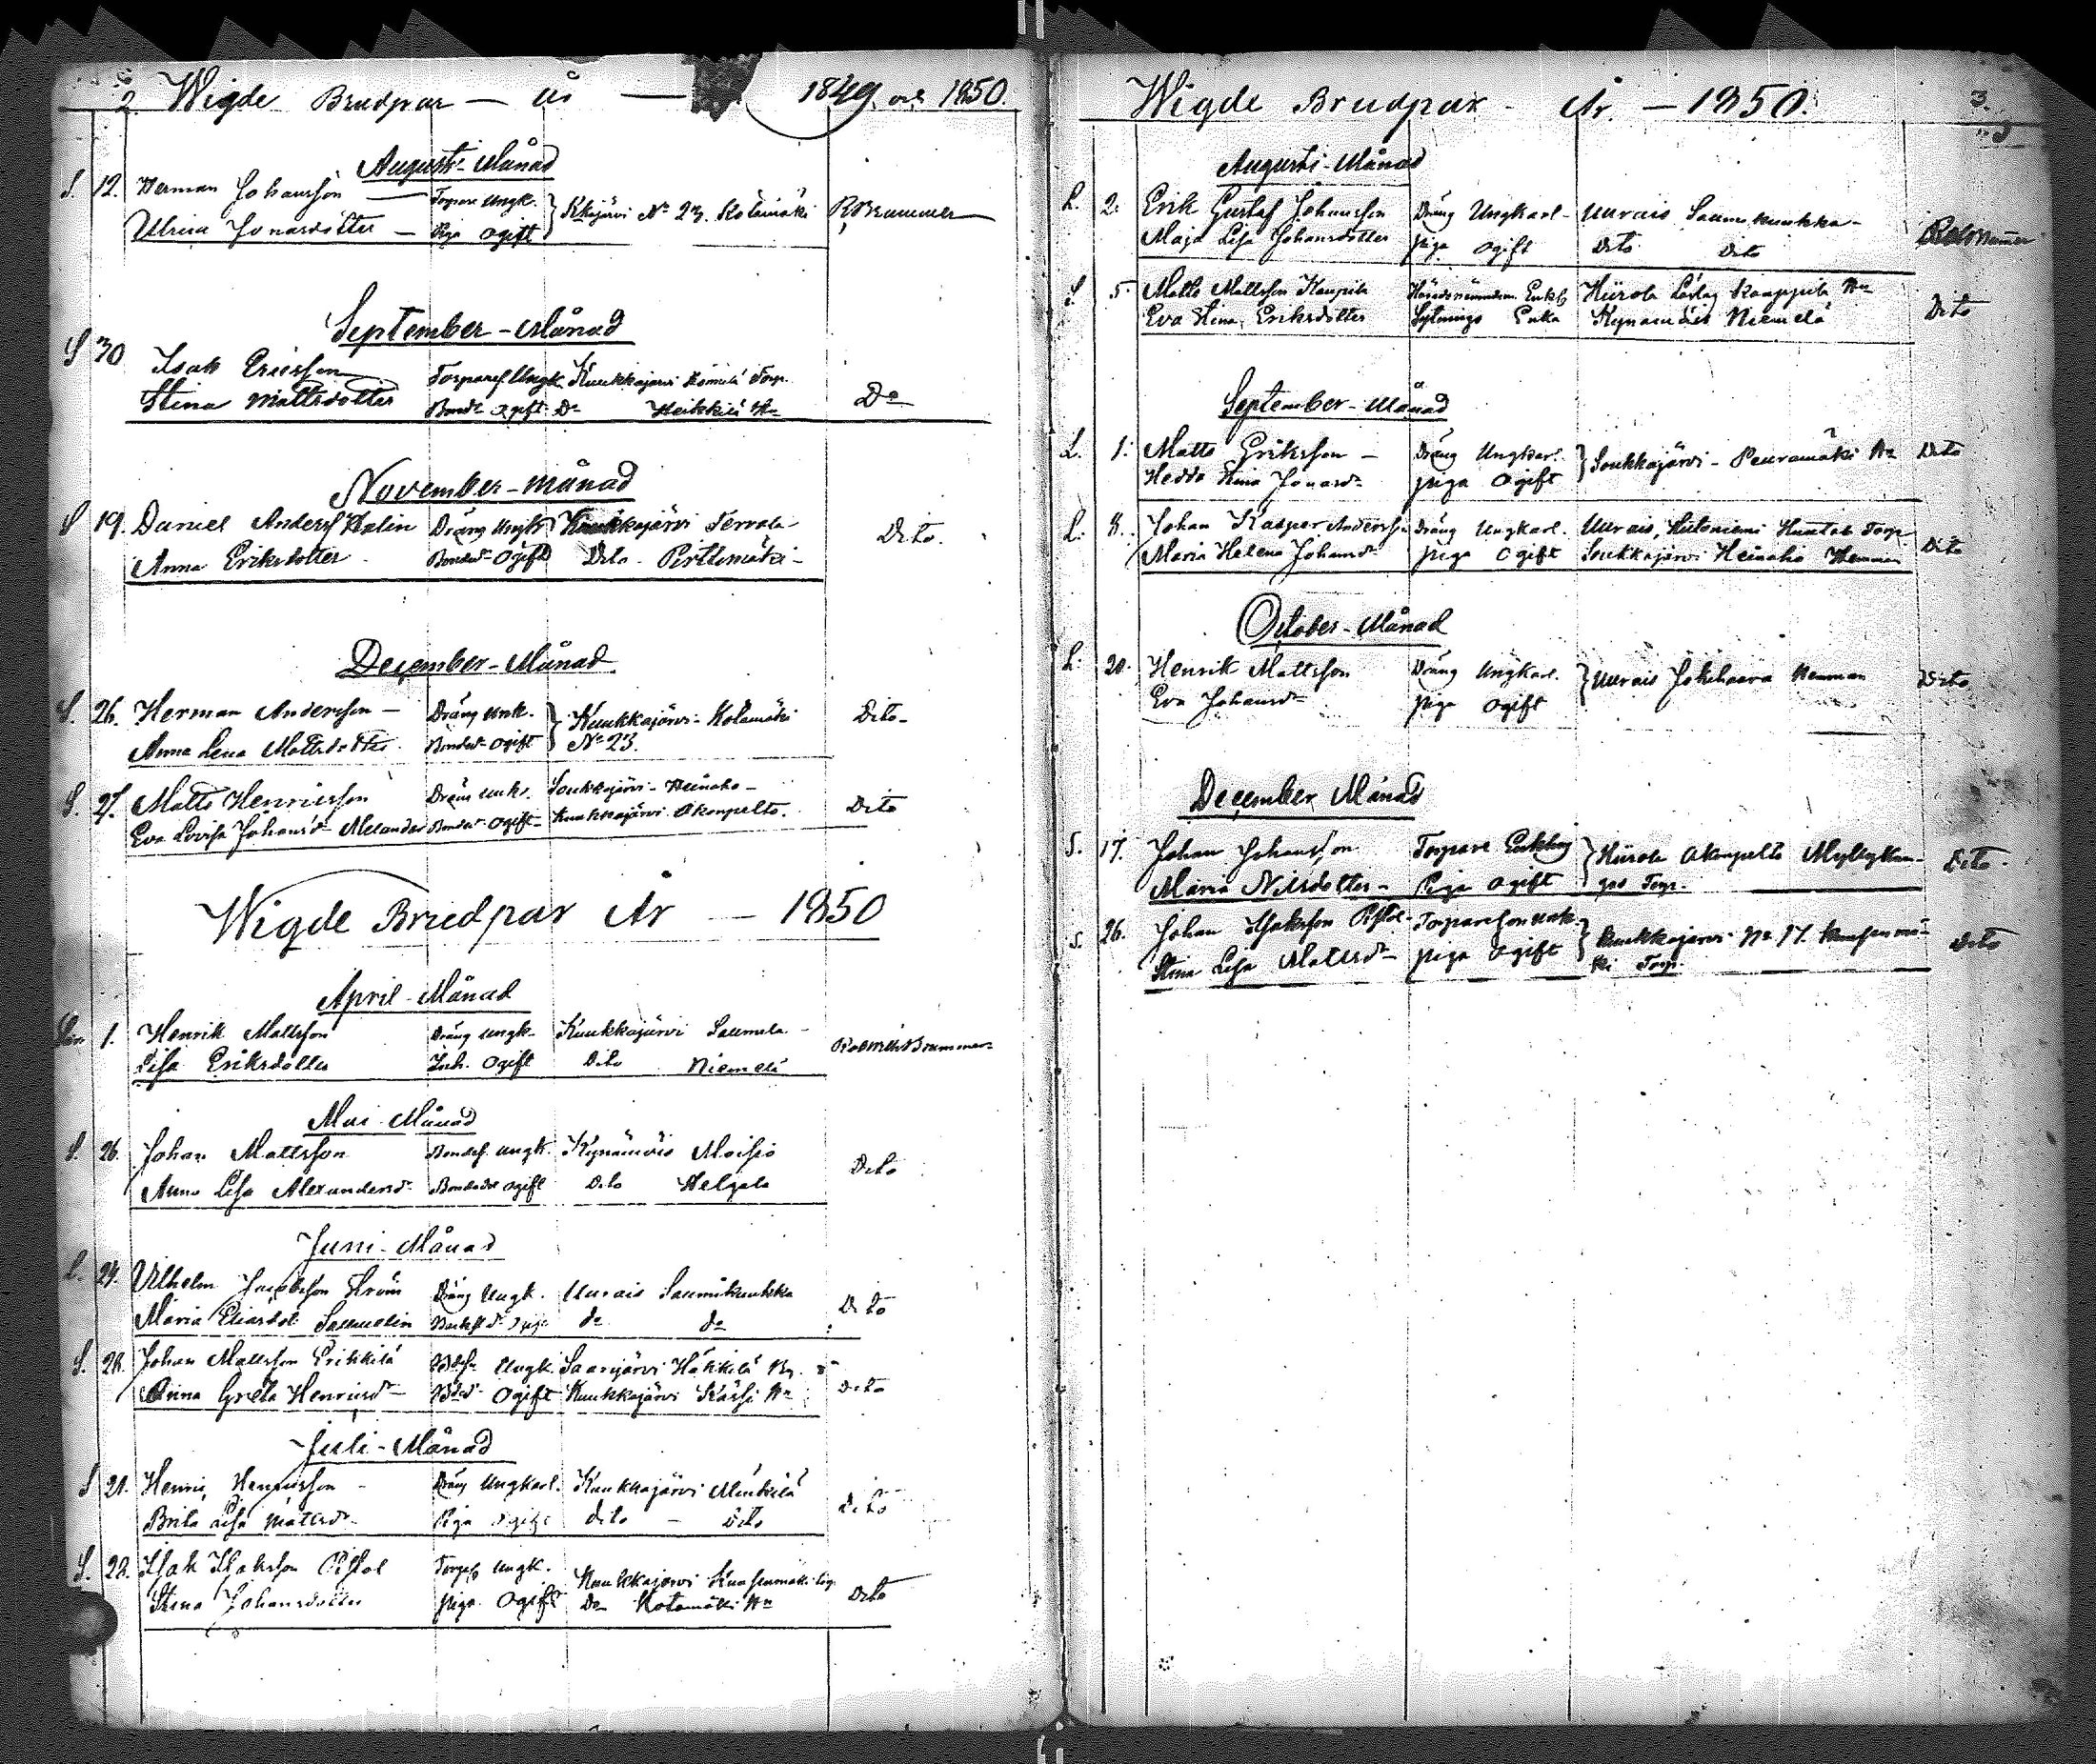 2. Wigde Brudpar — år — 1849 och 1850.
Augusti-Månad
S. 12. Herman Johansson — Torpare Ungk. Kkajärvi No 23. Kotamäki RBrummer
Ulrica Jonasdotter — Piga Ogift
September-Månad
S 30 Isak Ericsson Torpares. Ungk. Kuukkajärvi Torp.
Stina Mattsdotter Bonded. Ogift Do Heikkilä Hn Do
November-månad
S 19. Daniel Anders Dräng Ungk Kuukkajärvi Dito.
Anna Eriksdotter Bonded. Ogift Dito
December-Månad
S. 26. Herman Andersson — Dräng Unk. Kuukkajärvi - Kotamäki Dito
Anna Lena Mattsdotter Bonded. Ogift No 23.
S. 27. Matts Henricsson Dräng Unk. Soukkajärvi - Heinaho - Dito
Eva Lovisa Johansd. Melander Bonded. Ogift Kuukkajärvi Akonpelto.
Wigde Brudpar År — 1850
April-Månad
1. Henrik Mattsson Dräng Ungk. Kuukkajärvi
Lisa Eriksdotter Inh. Ogift Dito Niemelä
Mai-Månad
S. 26. Johan Mattsson Bondes. Ungk. Kynämöis Moisio Dito
Anna Lisa Alexandersd. Ogift Dito
Juni-Månad
24. Vilhelm Jacobsson Ström Dräng Ungk. Uurais Saunikuukka Dito
Maria Samuelin do do
S. 28. Johan Mattsson Erikkilä Ungk. Saarijärvi Häkkilä By. Dito
Anna Greta Henricsd. Ogift Kuukkajärvi Hn
Juli-Månad
S 21. Henric Henricsson Dräng Ungkarl. Kuukkajärvi Minkilä Dito
Brita Lisa Mattsd. Piga Ogift dito — Dito
S. 28. Isak Isaksson Pistol Torpes. Ungk. Kuukkajärvi Kuusenmäki torp Dito
Stina Johansdotter Piga Ogift Do Kotamäki Hn
Wigde Brudpar - År — 1850. 3.
Augusti-Månad
2. Erik Gustaf Johansson Dräng Ungkarl - Uurais Saunikuukka -
Maja Lisa Johansdotter Piga Ogift Dito Dito
5. Matts Mattsson Kauppila Enkl. Hiirola Kauppila Hn Dito
Eva Stina Eriksdotter Sytnings Enka Kynämöis Niemelä
September-Månad
L. 1. Matts Eriksson — Dräng Ungkarl. Soukkajärvi - Peuramäki Hn Dito
Hedda Stina Jonasd. Piga Ogift
L. 8. Johan Kasper Andersson Dräng Ungkarl. Uurais, Torp Dito
Maria Helena Johansd. Piga Ogift Soukkajärvi Heinaho Hemman
October-Månad
L. 20. Henrik Mattsson Dräng Ungkarl. Uurais Hemman Dito
Eva Johansd. Piga Ogift
December Månad
S. 17. Johan Johansson Torpare Enkling Hiirola Akonpelto Dito
Maria Nilsdotter — Piga Ogift Torp.
S. 26. Johan Isaksson Pistol - Torpareson unk. Kuukkajärvi No 17. Kuusenmä- Dito
Stina Lisa Mattsd. Piga Ogift ki Torp.